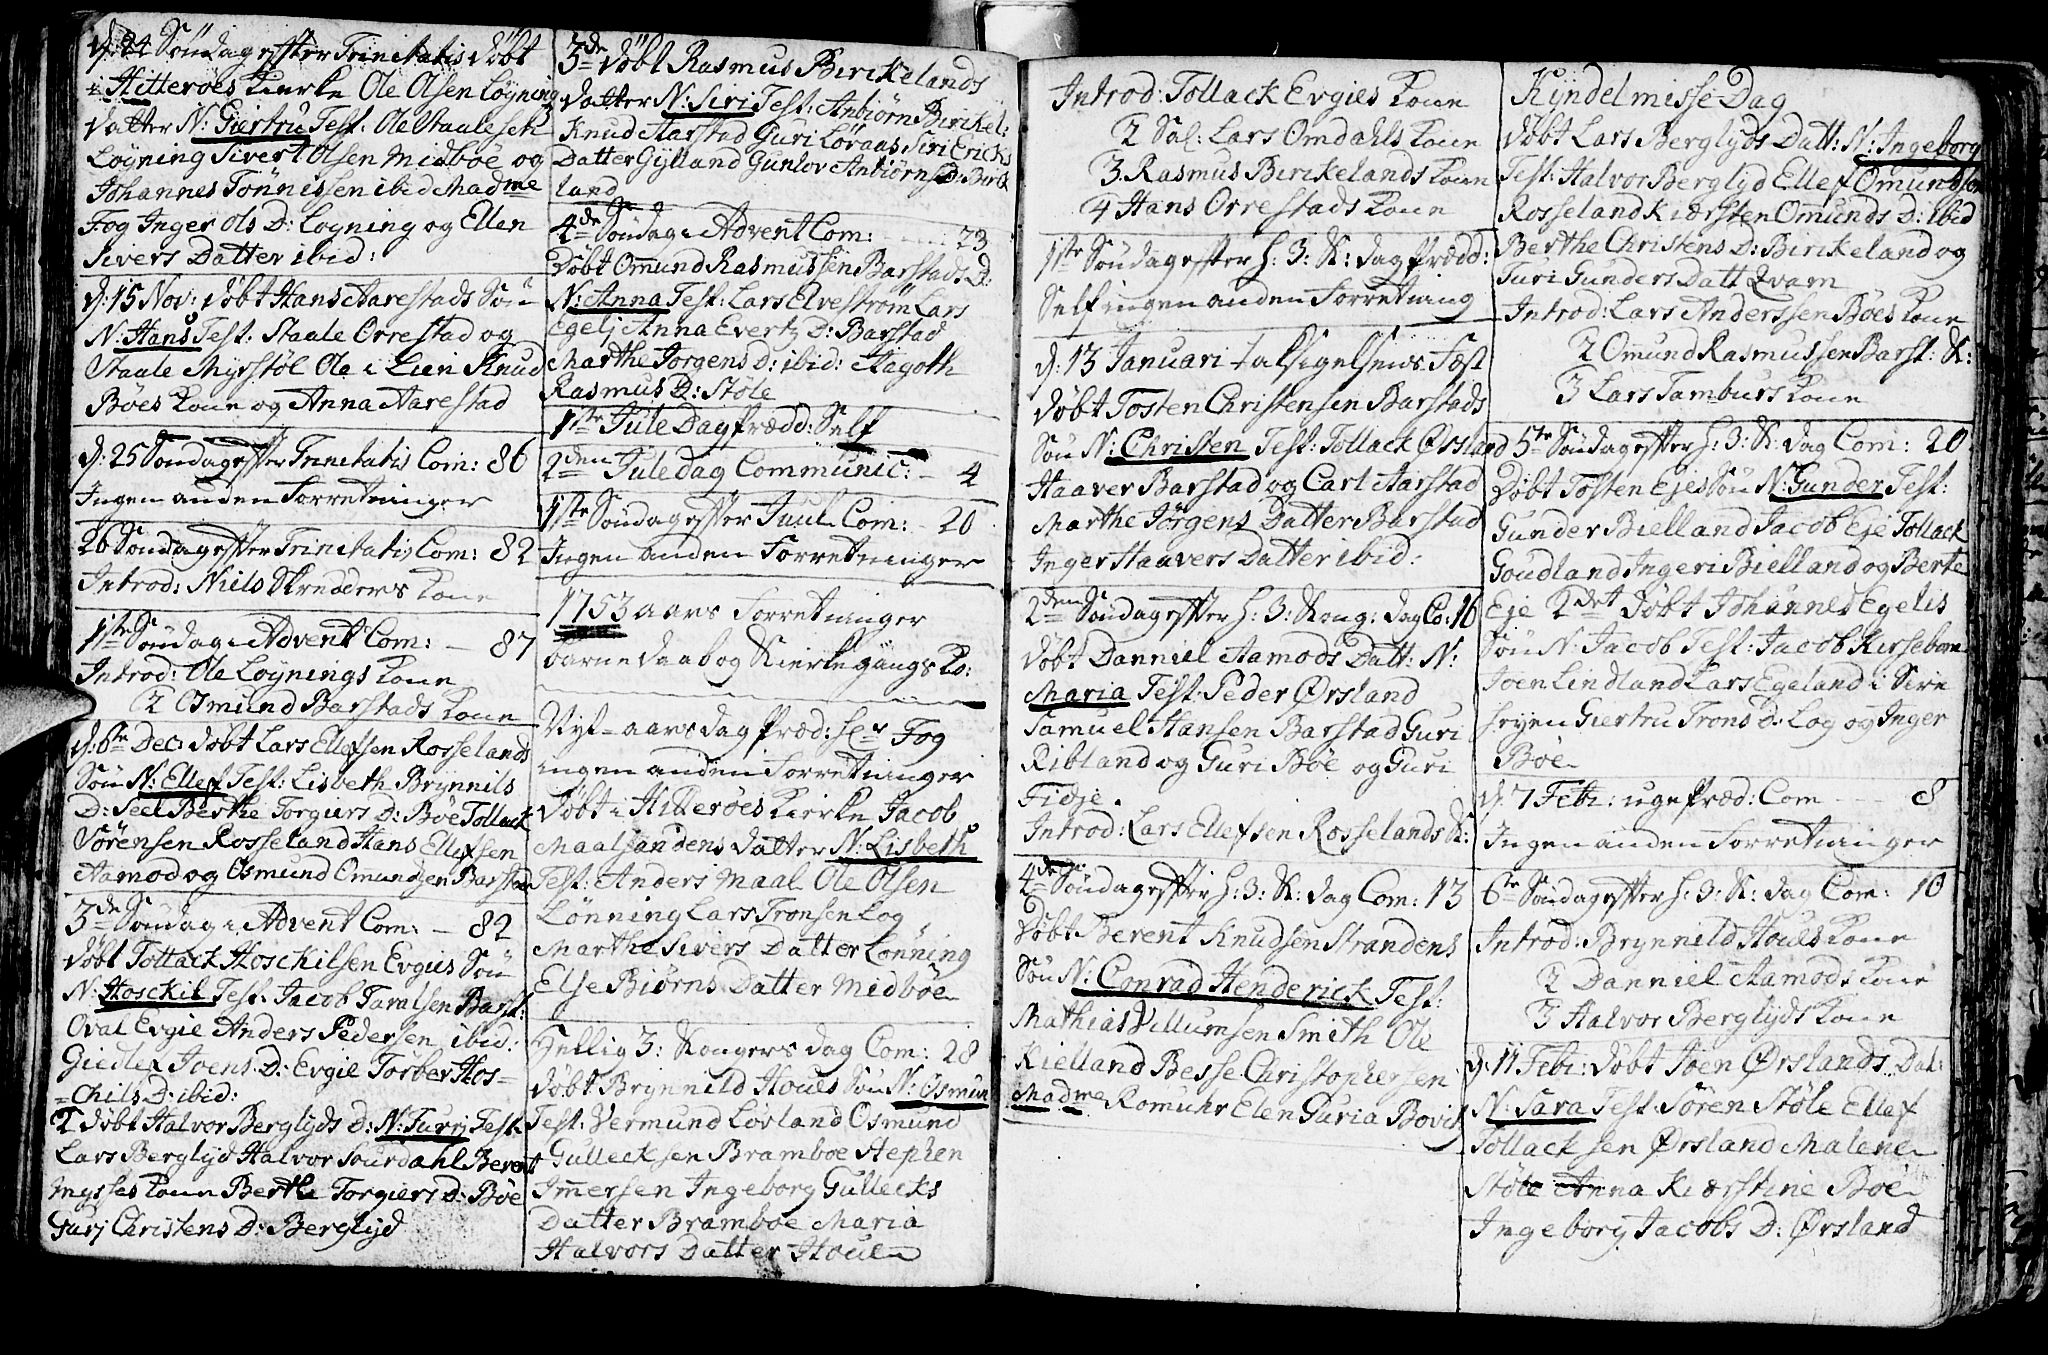 d: 24 Söndag effter Trinitatis döbt
i Hitteröes Kierke Ole Olsen Löyning
datter N: Giertru Test: Ole Staalesen
Löyning Sivert Olsen Midböe og
Johannes Tönnissen ibid Mad<sup>me</sup>
Fog Inger Ols D: Loyning og Ellen
Sivers Datter ibid:
d: 15 Nov: döbt Hans Aarestads Sön
N: Hans Test: Staale Orrestad og
Staale Myrstöl Ole i Lien Knud
Böes Kone og Anna Aarestad
d: 25 Söndag effter Trinitatis Com: 86
Ingen anden Forretninger
26 Söndag effter Trinitatis Com: 82
Introd: Niels Skredders Kone
1ste Söndag i Advent Com: — 87
Introd: Ole Löynings Kone
2 Osmund Barstads Kone
d: 6te Dec: döbt Lars Ellefsen Rosselands
Sön N: Ellef Test: Lisbeth Brynnils
D: Seel Berthe Torgiers D: Böe Tollack
Sörensen Rosseland Hans Ellefsen
Aamod og Osmund Omundsen Barstad
3de Söndag i Advent Com: — 82
döbt Tollack Hoschilsen Evgies Sön
N: Hosckil Test: Jacob Taralsen Barst:
Oval Evgie Anders Pedersen ibid:
Giedlex Joens D: Evgie Torber Hos=
=chils D: ibid:
2 döbt Halvor Berglyds D: N: Turrj Test:
Lars Berglyd Halvor Sourdahl Berent
Mysses Kone Berthe Torgiers D: Böe
Gurj Christens D: Berglyd
3de döbt Rasmus Birckelands
Datter N: Siri Test: Anbiörn Birckel:
Knud Aarstad Guri Lövaas Siri Ericks
Datter Gylland Gunlov Anbiörns D: Birck
land
4de Söndag i Advent Com: 23
Döbt Omund Rasmussen Barstads D:
N: Anna Test: Lars Elveström Lars
Egelj Anna Evertz D: Barstad
Marthe Jorgens D: ibid: Aagoth
Rasmus D: Stöle
1ste Jule Dag prædd: Self
2den Juledag Communic: — 4
1ste Söndag effter Juul Com: 20
Ingen anden Forretninger
1753 aars Forretninger
barne daab og Kierkegangs Ko:
Nyt-aarsdag præd: Hr Fog
ingen anden Forretninger
Döbt i Hitteröes Kierke Jacob
Maalsandens datter N: Lisbeth
Test: Anders Maal Ole Olsen
Lönning Lars Tronsen Log
Marthe Sivers Datter Lönning
Else Biörns Datter Midböe
Hellig 3: Kongers dag Com: 28
döbt Brynnild Houes Sön N: Osmun
Test: Vermund Lovland Osmund
Gulleeksen Bramboe Stephen
Immersen Ingeborg Gullecks
Datter Bramboe Maria
Halvors Datter Houen
Introd: Tollack Evgies Kone
2 Sal: Lars Omdahls Kone
3 Rasmus Birckelands Kone
4 Hans Orrestads Kone
1ste Söndag effter H: 3: K: dag prædd:
Self ingen anden Forretning
d: 13 Januari Taksigelsens Fest
döbt Tosten Christensen Barstads
Sön N: Christen Test: Tollack Ørsland
Haaver Barstad og Carl Aarstad
Marthe Jörgens Datter Barstad
Inger Haavers Datter ibid:
2den Söndag effter H: 3: Kong: dag Co: 16
döbt Danniel Aamods Datt: N:
Maria Test: Peder Ørsland
Samuel Hansen Barstad Guri
Ribland og Guri Böe og Guri
Fidje.
Introd: Lars Ellefsen Rosselands K:
4de Söndag effter H: 3: K: dag Com: 13
Döbt Berent Knudsen Strandens
Sön N: Conrad Henderick Test:
Mathias Villumsen Smith Ole
Kielland Besse Christophersen
Mad<sup>me</sup> Romuhr Elen Guria Bovitz
Kyndelmisse Dag
döbt Lars Berglyds Datt: N: Ingeborg
Test: Halvor Berglyd Ellef Omundsen
Rosseland Kiersten Omunds D: ibid
Berthe Christens D: Birckeland og
Turi Gunders Datt Qvam
Introd: Lars Anderssen Böes Kone
2 Omund Rasmussen Barst: K:
3 Lars Tamburs Kone
5te Söndag effter H: 3: K: dag Com: 20
Döbt Tosten Ejes Sön N: Gunder Test:
Gunder Bielland Jacob Eje Tollack
Goudland Ingeri Bielland og Berte
Eje 2det Döbt Johannes Egelis
Sön N: Jacob Test: Jacob Kirsebom
Joen Lindland Lars Egeland i Sire
Giertru Trons D: Log og Inger
Böe
d: 7 Feb: ugepræd: Com — 8
Ingen anden Forretninger
6te Söndag effter H: 3: K: dag Com: 10
Introd: Brynnild Houes Kone
2 Danniel Aamods Kone
3 Halvor Berglyds Kone
d: 11 Feb: döbt Joen Ørslands Dat:
N: Sara Test: Sören Stöle Ellef
Tollacksen Ørsland Malene
Stöle Anna Kierstine Böe
Ingeborg Jacobs D: Ørsland